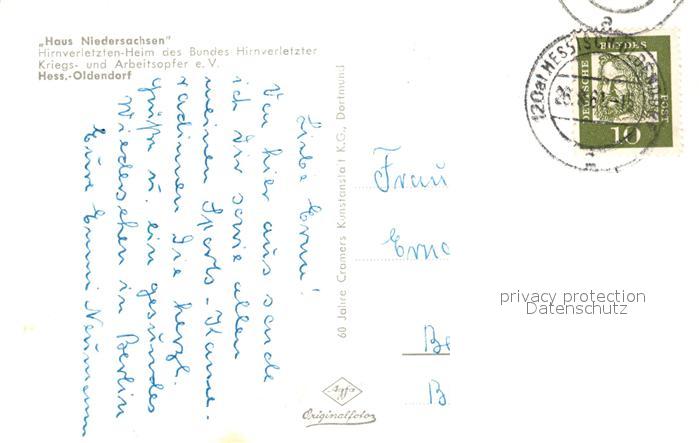 „Haus Niedersachsen"
Hirnverletzten-Heim des Bundes Hirnverletzter
Kriegs- und Arbeitsopfer e. V.
Hess.-Oldendorf
Liebe Erna!
Von hier aus sende
ich Dir sowie allen
meinen Sports-Kame-
radinnen die herzl.
Grüße u. ein gesundes
Wiedersehen in Berlin
Eure Emmi Neumann
60 Jahre Cramers Kunstanstalt K.G., Dortmund
Agfa
Originalfoto
Frau
DEUTSCHE BUNDESPOST
10
privacy protection
Datenschutz